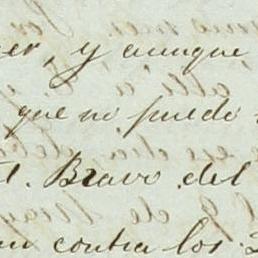 y aunque
que no puedo
Bravo del
contra los